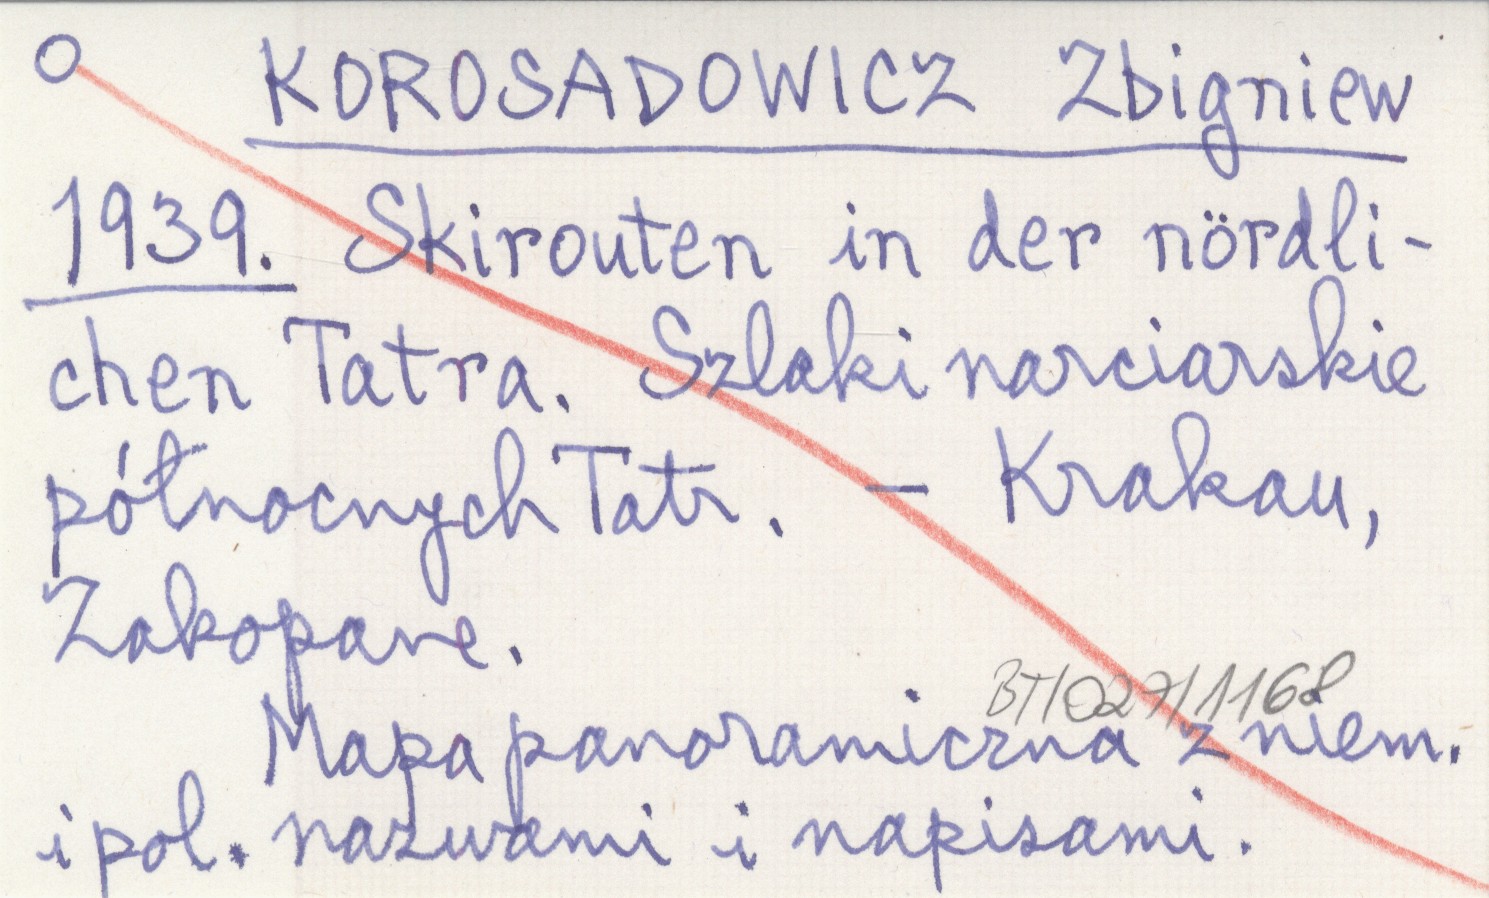 KOROSADOWICZ Zbigniew
1939. Skirouten in der nördli-
chen Tatra. Szlaki narciarskie
północnych Tatr. – Krakau,
Zakopane.
BT/027/1168
Mapa panoramiczna z niem.
i pol. nazwami i napisami.